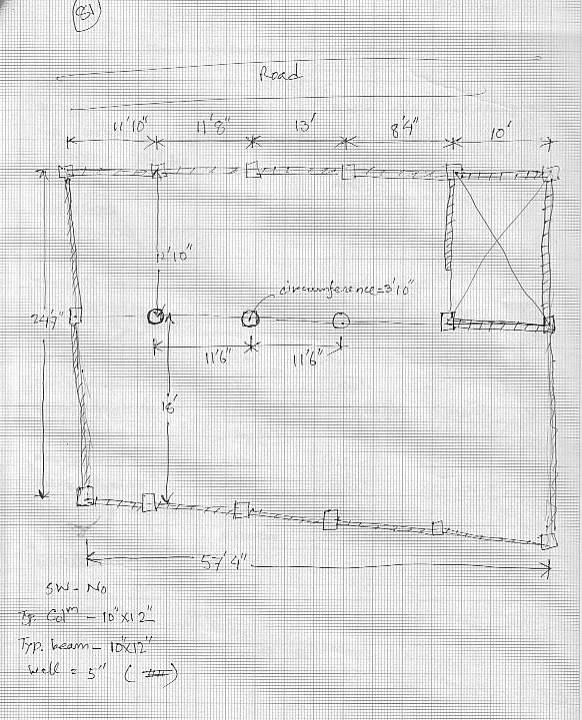 81
Road
11'10" 11'8" 13' 8'4" 10'
12'10"
circumference=3'10"
24'7"
11'6" 11'6"
18'
57'4"
SW - No
Typ. Colm - 10"x12"
Typ. beam - 10"x12"
Wall = 5" ( )